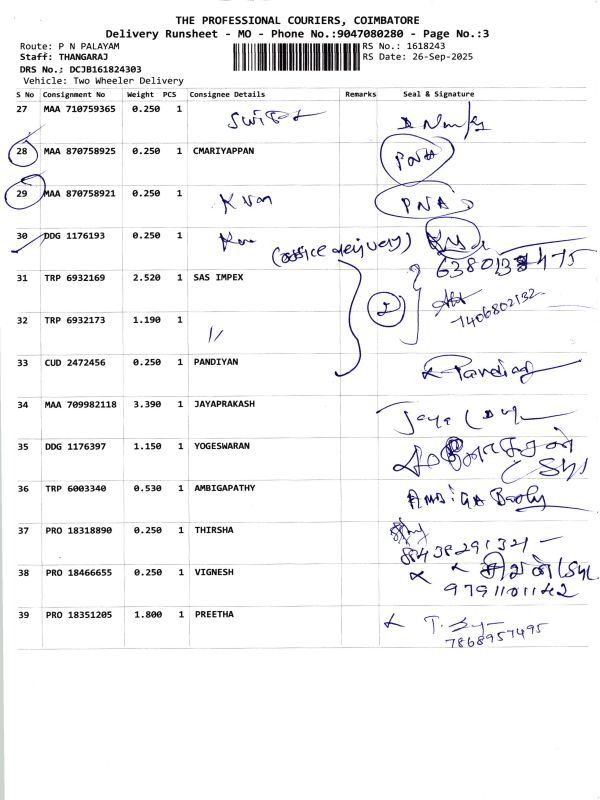 THE PROFESSIONAL COURIERS, COIMBATORE
Delivery Runsheet - MO - Phone No.:9047080280 - Page No.:3
Route: P N PALAYAM RS No.: 1618243
Staff: THANGARAJ RS Date: 26-Sep-2025
DRS No.: DCJB161824303
Vehicle: Two Wheeler Delivery
S No Consignment No Weight PCS Consignee Details Remarks Seal & Signature
27 MAA 710759365 0.250 1
28 MAA 870758925 0.250 1 CMARIYAPPAN PNA
29 MAA 870758921 0.250 1 PNA
30 DDG 1176193 0.250 1 (office delivery)
31 TRP 6932169 2.520 1 SAS IMPEX
32 TRP 6932173 1.190 1 " 2 7406802132
33 CUD 2472456 0.250 1 PANDIYAN Pandiay
34 MAA 709982118 3.390 1 JAYAPRAKASH Jaya
35 DDG 1176397 1.150 1 YOGESWARAN
36 TRP 6003340 0.530 1 AMBIGAPATHY
37 PRO 18318890 0.250 1 THIRSHA 8438291321
38 PRO 18466655 0.250 1 VIGNESH
9791101142
39 PRO 18351205 1.800 1 PREETHA
7868957495